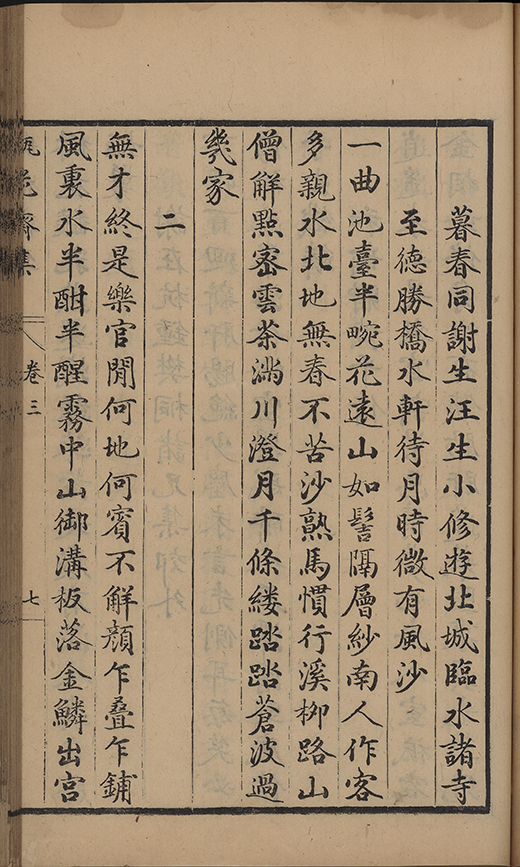 暮春同謝生汪生小修遊北城臨水諸寺
至德勝橋水軒待月時微有風沙
一曲池臺半畹花遠山如髻隔層紗南人作客
多親水北地無春不苦沙熟馬慣行溪柳路山
僧解點密雲茶滿川澄月千條縷踏踏蒼波過
幾家
二
無才終是樂官閒何地何賓不解顏乍疊乍鋪
風裏水半酣半醒霧中山御溝板落金鱗出宮
瓶花齋集
卷三
七